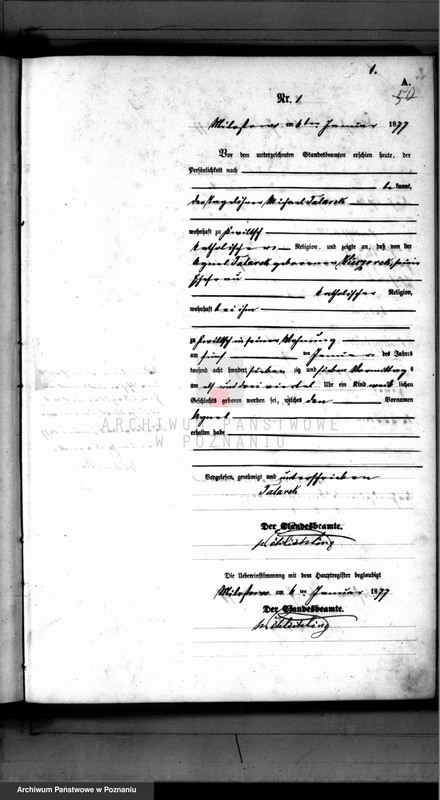 1.
A.
50
Nr. 1
Milostowo am 6ten Januar 1877
Vor dem unterzeichneten Standesbeamten erschien heute, der
Persönlichkeit nach
be kannt,
der Tagelöhner Michael Talarek
wohnhaft zu
katholischer Religion, und zeigte an, daß von der
Agnes Talarek geborenen seiner
Ehefrau
katholischer Religion,
wohnhaft bei ihm
zu in seiner Wohnung
am fünf ten Januar des Jahres
tausend acht hundert sieben zig und sieben Vormittags
um elf und drei viertel Uhr ein Kind weib lichen
Geschlechts geboren worden sei, welches den Vornamen
Agnes
erhalten habe
Vorgelesen, genehmigt und unterschrieben
Talarek
Der Standesbeamte.
Die Uebereinstimmung mit dem Hauptregister beglaubigt
Milostowo am 6 ten Januar 1877
Der Standesbeamte.
ARCHIWUM PAŃSTWOWE
W POZNANIU
Archiwum Państwowe w Poznaniu